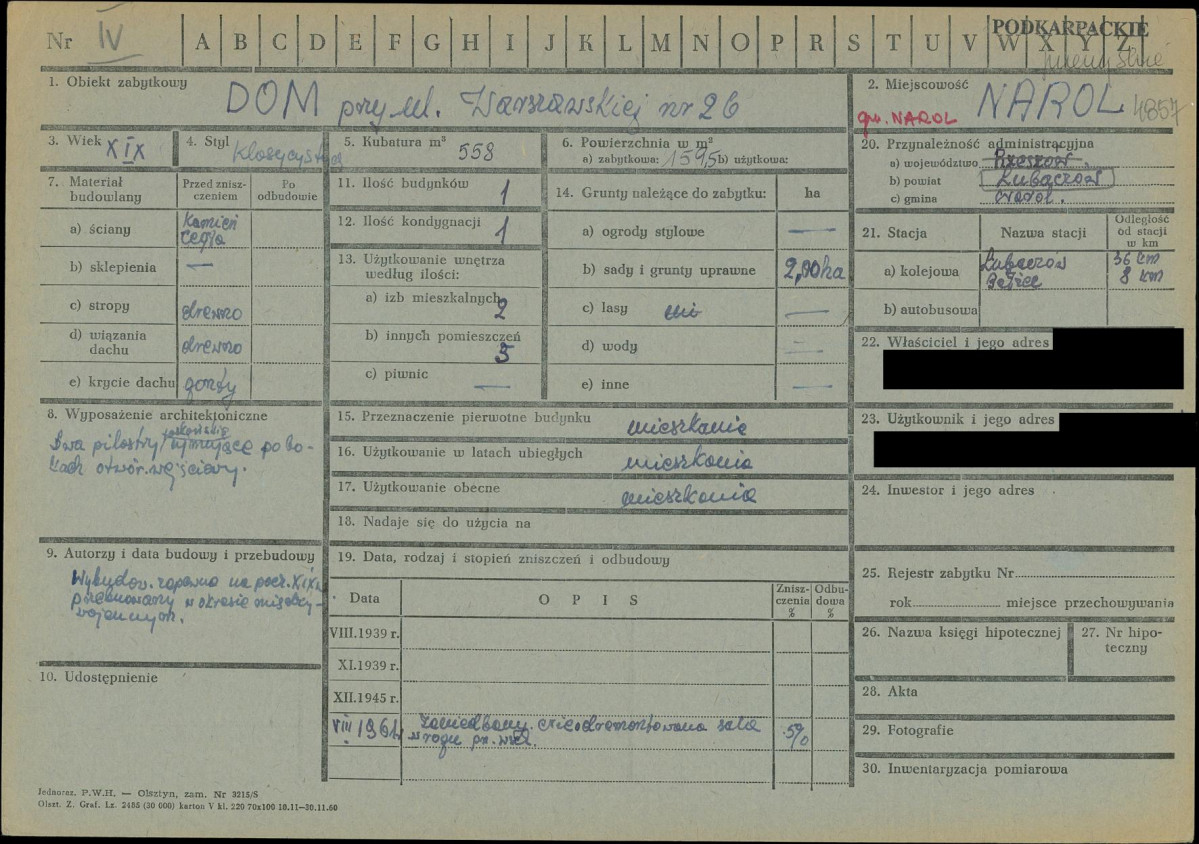 Nr IV A B C D E F G H I J K L M N O P R S T U V W X Y Z
PODKARPACKIE
1. Obiekt zabytkowy
DOM przy ul. Warszawskiej nr 26
2. Miejscowość
NAROL
gm. NAROL
4857
3. Wiek XIX
4. Styl klasycyst
5. Kubatura m³ 558
6. Powierzchnia w m²
a) zabytkowa: 159,5 b) użytkowa:
20. Przynależność administracyjna
a) województwo Rzeszów
b) powiat Lubaczów
c) gmina Narol.
7. Materiał budowlany
Przed zniszczeniem
Po odbudowie
a) ściany Kamień cegła
b) sklepienia —
c) stropy drewno
d) wiązania dachu drewno
e) krycie dachu gonty
11. Ilość budynków 1
12. Ilość kondygnacji 1
13. Użytkowanie wnętrza według ilości:
a) izb mieszkalnych 2
b) innych pomieszczeń 5
c) piwnic —
14. Grunty należące do zabytku: ha
a) ogrody stylowe —
b) sady i grunty uprawne 2,00 ha
c) lasy —
d) wody —
e) inne —
21. Stacja
Nazwa stacji
Odległość od stacji w km
a) kolejowa Lubaczów 36 km
Bełżec 8 km
b) autobusowa
22. Właściciel i jego adres
23. Użytkownik i jego adres
24. Inwestor i jego adres
8. Wyposażenie architektoniczne
Dwa pilastry toskańskie ujmujące po bo-
kach otwór wejściowy.
15. Przeznaczenie pierwotne budynku mieszkanie
16. Użytkowanie w latach ubiegłych mieszkania
17. Użytkowanie obecne mieszkania
18. Nadaje się do użycia na
9. Autorzy i data budowy i przebudowy
Wybudow. zapewne na pocz. XIX w.
przebudowany w okresie między-
wojennym.
10. Udostępnienie
19. Data, rodzaj i stopień zniszczeń i odbudowy
Data
OPIS
Zniszczenia %
Odbudowa %
VIII.1939 r.
XI.1939 r.
XII.1945 r.
VIII 1961 Zaniedbany. nieodremontowana sala 5%
w rogu pn. wsch.
25. Rejestr zabytku Nr
rok miejsce przechowywania
26. Nazwa księgi hipotecznej
27. Nr hipoteczny
28. Akta
29. Fotografie
30. Inwentaryzacja pomiarowa
Jednoraz. P.W.H. — Olsztyn, zam. Nr 3215/S
Olszt. Z. Graf. Lz. 2485 (30 000) karton V kl. 220 70x100 18.11—30.11.60